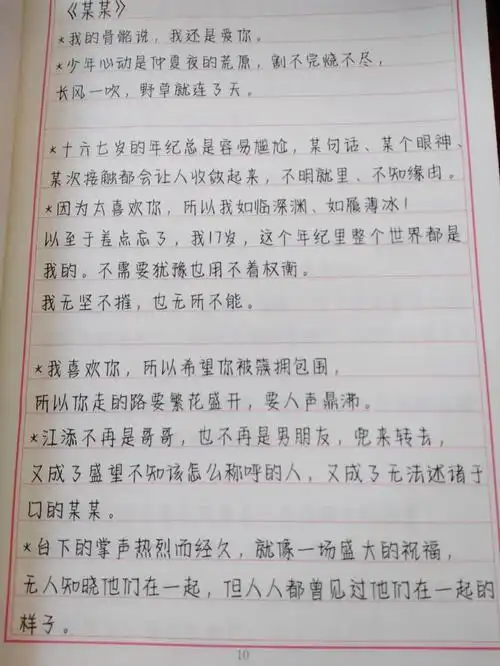 《某某》
*我的骨骼说，我还是爱你。
*少年心动是仲夏夜的荒原，割不完烧不尽，
长风一吹，野草就连了天。
*十六七岁的年纪总是容易尴尬，某句话、某个眼神、
某次接触都会让人收敛起来，不明就里、不知缘由。
*因为太喜欢你，所以我如临深渊、如履薄冰！
以至于差点忘了，我17岁，这个年纪里整个世界都是
我的。不需要犹豫也用不着权衡。
我无坚不摧，也无所不能。
*我喜欢你，所以希望你被簇拥包围，
所以你走的路要繁花盛开，要人声鼎沸。
*江添不再是哥哥，也不再是男朋友，兜来转去，
又成了盛望不知该怎么称呼的人，又成了无法述诸于
口的某某。
*台下的掌声热烈而经久，就像一场盛大的祝福，
无人知晓他们在一起，但人人都曾见过他们在一起的
样子。
10